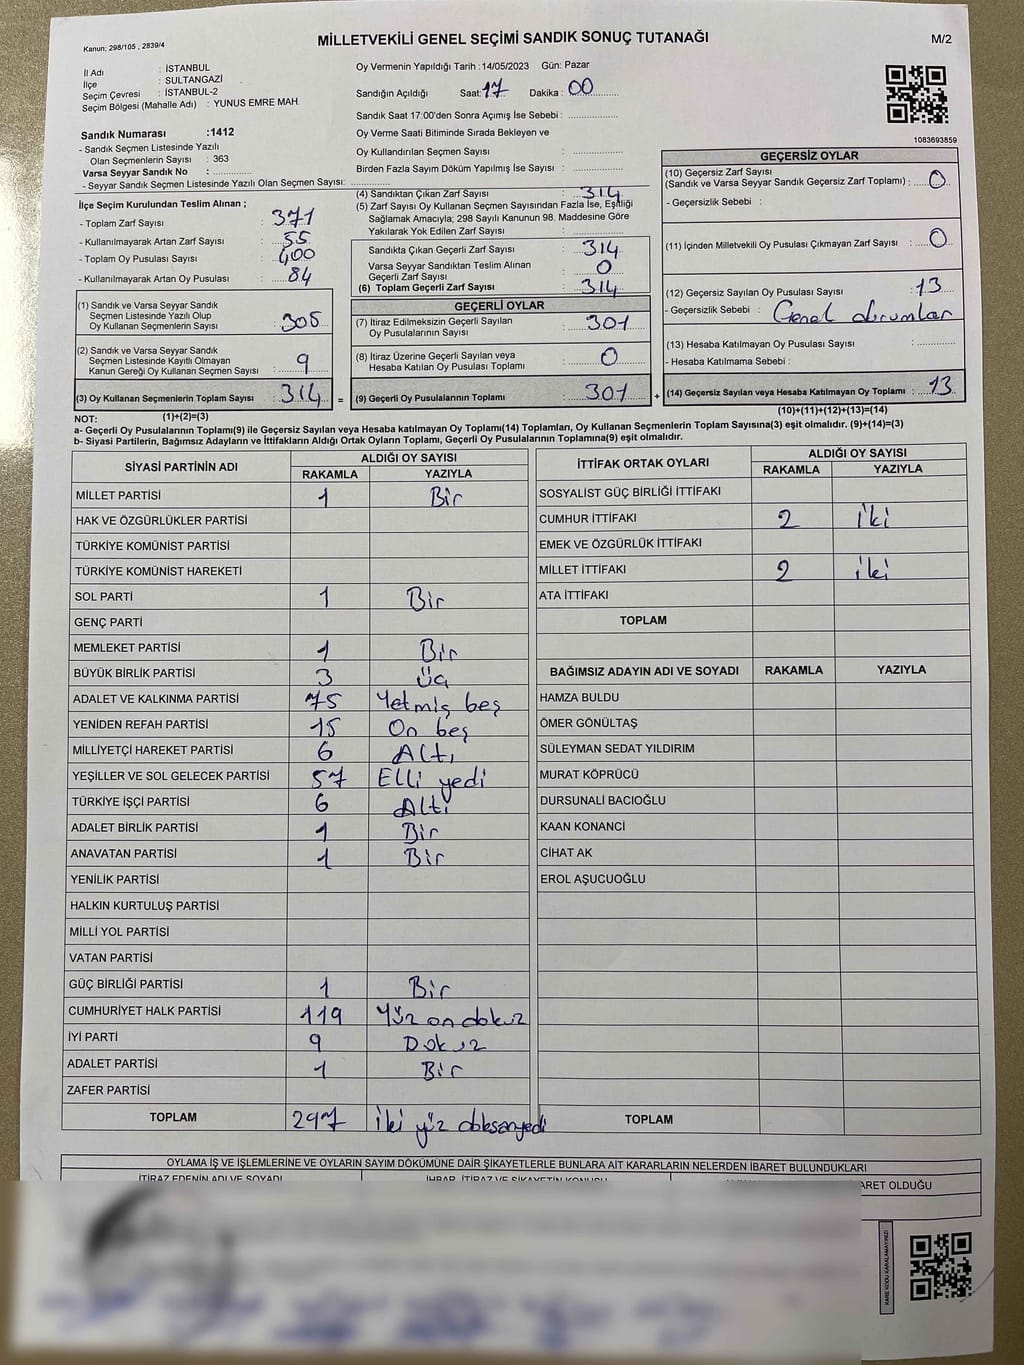 Kanun; 298/105 , 2839/4
MİLLETVEKİLİ GENEL SEÇİMİ SANDIK SONUÇ TUTANAĞI
M/2
İl Adı : İSTANBUL
İlçe : SULTANGAZİ
Seçim Çevresi : İSTANBUL-2
Seçim Bölgesi (Mahalle Adı) : YUNUS EMRE MAH.
Sandık Numarası :1412
- Sandık Seçmen Listesinde Yazılı
Olan Seçmenlerin Sayısı : 363
Varsa Seyyar Sandık No :
- Seyyar Sandık Seçmen Listesinde Yazılı Olan Seçmen Sayısı:
Oy Vermenin Yapıldığı Tarih :14/05/2023 Gün: Pazar
Sandığın Açıldığı Saat: 17 Dakika : 00
Sandık Saat 17:00'den Sonra Açımış İse Sebebi :
Oy Verme Saati Bitiminde Sırada Bekleyen ve
Oy Kullandırılan Seçmen Sayısı :
Birden Fazla Sayım Döküm Yapılmış İse Sayısı :
1083693859
İlçe Seçim Kurulundan Teslim Alınan ;
- Toplam Zarf Sayısı : 371
- Kullanılmayarak Artan Zarf Sayısı : 55
- Toplam Oy Pusulası Sayısı : 400
- Kullanılmayarak Artan Oy Pusulası : 84
(1) Sandık ve Varsa Seyyar Sandık
Seçmen Listesinde Yazılı Olup
Oy Kullanan Seçmenlerin Sayısı : 305
(2) Sandık ve Varsa Seyyar Sandık
Seçmen Listesinde Kayıtlı Olmayan
Kanun Gereği Oy Kullanan Seçmen Sayısı : 9
(3) Oy Kullanan Seçmenlerin Toplam Sayısı : 314 =
(1)+(2)=(3)
(4) Sandıktan Çıkan Zarf Sayısı : 314
(5) Zarf Sayısı Oy Kullanan Seçmen Sayısından Fazla İse, Eşitliği
Sağlamak Amacıyla; 298 Sayılı Kanunun 98. Maddesine Göre
Yakılarak Yok Edilen Zarf Sayısı :
Sandıkta Çıkan Geçerli Zarf Sayısı : 314
Varsa Seyyar Sandıktan Teslim Alınan
Geçerli Zarf Sayısı : 0
(6) Toplam Geçerli Zarf Sayısı : 314
GEÇERLİ OYLAR
(7) İtiraz Edilmeksizin Geçerli Sayılan
Oy Pusulalarının Sayısı : 301
(8) İtiraz Üzerine Geçerli Sayılan veya
Hesaba Katılan Oy Pusulası Toplamı : 0
(9) Geçerli Oy Pusulalarının Toplamı : 301 +
GEÇERSİZ OYLAR
(10) Geçersiz Zarf Sayısı
(Sandık ve Varsa Seyyar Sandık Geçersiz Zarf Toplamı) : 0
- Geçersizlik Sebebi :
(11) İçinden Milletvekili Oy Pusulası Çıkmayan Zarf Sayısı : 0
(12) Geçersiz Sayılan Oy Pusulası Sayısı : 13
- Geçersizlik Sebebi : Genel durumlar
(13) Hesaba Katılmayan Oy Pusulası Sayısı :
- Hesaba Katılmama Sebebi :
(14) Geçersiz Sayılan veya Hesaba Katılmayan Oy Toplamı : 13
(10)+(11)+(12)+(13)=(14)
NOT:
a- Geçerli Oy Pusulalarının Toplamı(9) ile Geçersiz Sayılan veya Hesaba katılmayan Oy Toplamı(14) Toplamları, Oy Kullanan Seçmenlerin Toplam Sayısına(3) eşit olmalıdır. (9)+(14)=(3)
b- Siyasi Partilerin, Bağımsız Adayların ve İttifakların Aldığı Ortak Oyların Toplamı, Geçerli Oy Pusulalarının Toplamına(9) eşit olmalıdır.
SİYASİ PARTİNİN ADI ALDIĞI OY SAYISI
RAKAMLA YAZIYLA
MİLLET PARTİSİ 1 Bir
HAK VE ÖZGÜRLÜKLER PARTİSİ
TÜRKİYE KOMÜNİST PARTİSİ
TÜRKİYE KOMÜNİST HAREKETİ
SOL PARTİ 1 Bir
GENÇ PARTİ
MEMLEKET PARTİSİ 1 Bir
BÜYÜK BİRLİK PARTİSİ 3 üç
ADALET VE KALKINMA PARTİSİ 75 Yetmiş beş
YENİDEN REFAH PARTİSİ 15 On beş
MİLLİYETÇİ HAREKET PARTİSİ 6 Altı
YEŞİLLER VE SOL GELECEK PARTİSİ 57 Elli yedi
TÜRKİYE İŞÇİ PARTİSİ 6 Altı
ADALET BİRLİK PARTİSİ 1 Bir
ANAVATAN PARTİSİ 1 Bir
YENİLİK PARTİSİ
HALKIN KURTULUŞ PARTİSİ
MİLLİ YOL PARTİSİ
VATAN PARTİSİ
GÜÇ BİRLİĞİ PARTİSİ 1 Bir
CUMHURİYET HALK PARTİSİ 119 Yüz on dokuz
İYİ PARTİ 9 Dokuz
ADALET PARTİSİ 1 Bir
ZAFER PARTİSİ
TOPLAM 297 iki yüz doksanyedi
İTTİFAK ORTAK OYLARI ALDIĞI OY SAYISI
RAKAMLA YAZIYLA
SOSYALİST GÜÇ BİRLİĞİ İTTİFAKI
CUMHUR İTTİFAKI 2 iki
EMEK VE ÖZGÜRLÜK İTTİFAKI
MİLLET İTTİFAKI 2 iki
ATA İTTİFAKI
TOPLAM
BAĞIMSIZ ADAYIN ADI VE SOYADI RAKAMLA YAZIYLA
HAMZA BULDU
ÖMER GÖNÜLTAŞ
SÜLEYMAN SEDAT YILDIRIM
MURAT KÖPRÜCÜ
DURSUNALİ BACIOĞLU
KAAN KONANCİ
CİHAT AK
EROL AŞUCUOĞLU
TOPLAM
OYLAMA İŞ VE İŞLEMLERİNE VE OYLARIN SAYIM DÖKÜMÜNE DAİR ŞİKAYETLERLE BUNLARA AİT KARARLARIN NELERDEN İBARET BULUNDUKLARI
İTİRAZ EDENİN ADI VE SOYADI İHBAR, İTİRAZ VE ŞİKAYETİN KONUSU BARET OLDUĞU
KARE KODU KARALAMAYINIZ!